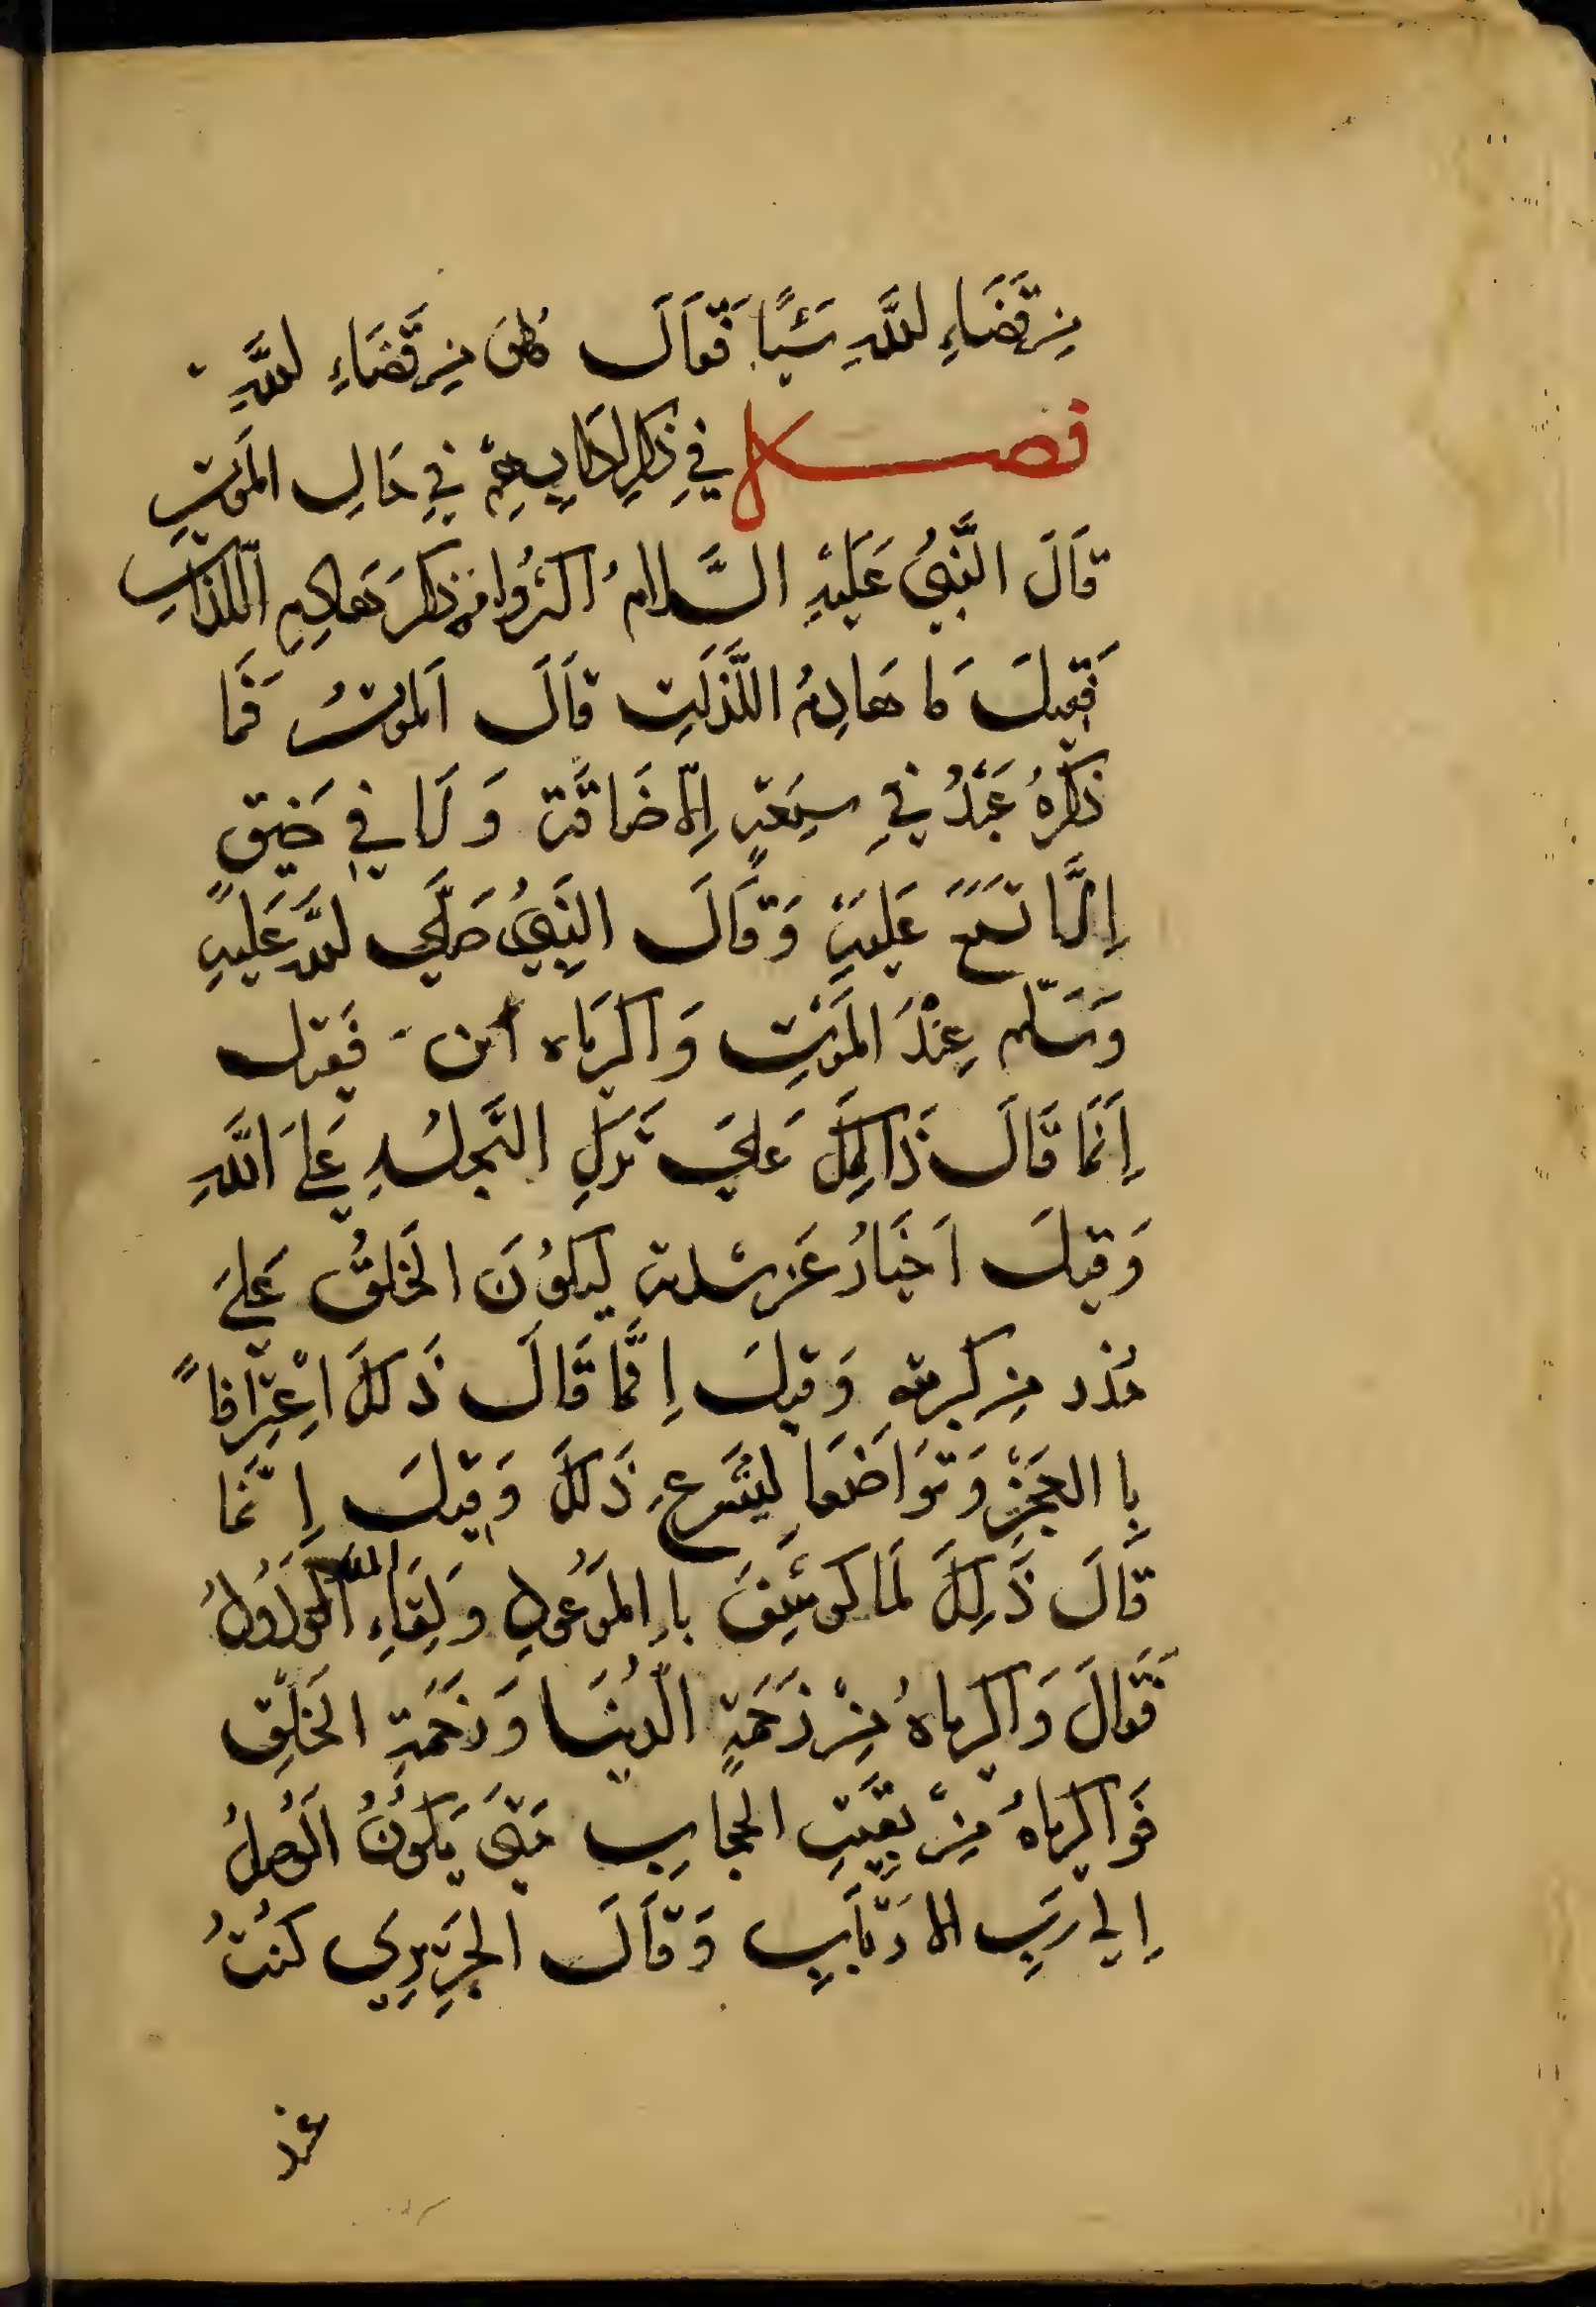 مِن قَضَاءِ اللَّهِ شَيْئًا فَقَالَ كُلٌّ مِن قَضَاءِ اللَّهِ
فصل في ذكر في حَالِ المَوْتِ
قَالَ النَّبِيُّ عَلَيْهِ السَّلَامُ اكثرُوا من ذِكرَ هَادِمِ اللَّذاتِ
فَقِيلَ مَا هَادِمُ اللَّذاتِ قَالَ المَوتُ فَمَا
ذكرهُ عَبْدُ فِي سِعَةٍ إِلَّا ضَاقَت وَلَا فِي ضَيقٍ
إِلَّا تسَعَ عَلَيهِ وَقَالَ النَّبِيُّ صَلَّى اللَّهُ عَلَيهِ
وَسَلَّم عِنْدَ المَوْتِ وَاكربَاه فَقِيل
إِنَّمَا قَالَ ذَالِكَ عَلَى تَركِ التَّجلُّدِ عَلَى اللَّهِ
وَقِيلَ اَخْبَارُ عَن شدّته لِيَكُونَ الخَلقُ عَلَى
حَذر مِن كربتهِ وَقِيلَ إِنَّمَا قَالَ ذَلكَ اعْتِرَافاً
بِا العَجْزِ وَتَوَاضعَا لِيشرع ذَلكَ وَقِيلَ إِنَّمَا
قَالَ ذَلِكَ لَمَا كوشِفَ بِا المَوعُودِ وَلِقَاءِ الله
فَقَالَ وَاكرباهُ مِنْ زَحمَةِ الدُّنيَا وَزحمَةِ الخَلْقِ
فَوَاكرباهُ مِنْ بَقِيَّتِ الحِجَابِ مَتَى يَكُونُ الوَصْلُ
إِلَى رَبِّ الأربَابِ وَقَالَ الجَرِيرِي كُنتُ
عند